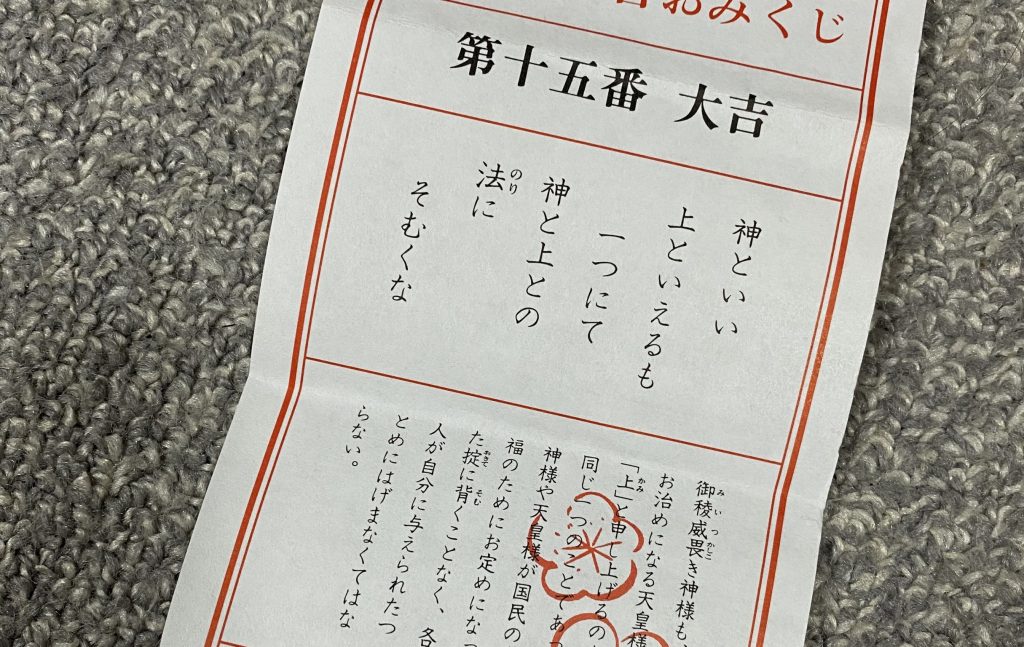 おみくじ
第十五番 大吉
神といい
上といえるも
一つにて
神と上との
法に
のり
そむくな
御稜威畏き神様も、
みいつ かしこ
お治めになる天皇様
「上」と申し上げるの
かみ
同じ一つのことであっ
神様や天皇様が国民の
福のためにお定めになっ
た掟に背くことなく、各
おきて そむ
人が自分に与えられたつ
とめにはげまなくてはな
らない。